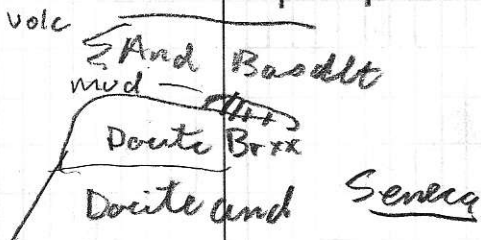 volc
And Basalt
mud
Dacite Brxx
Dacite and
Seneca